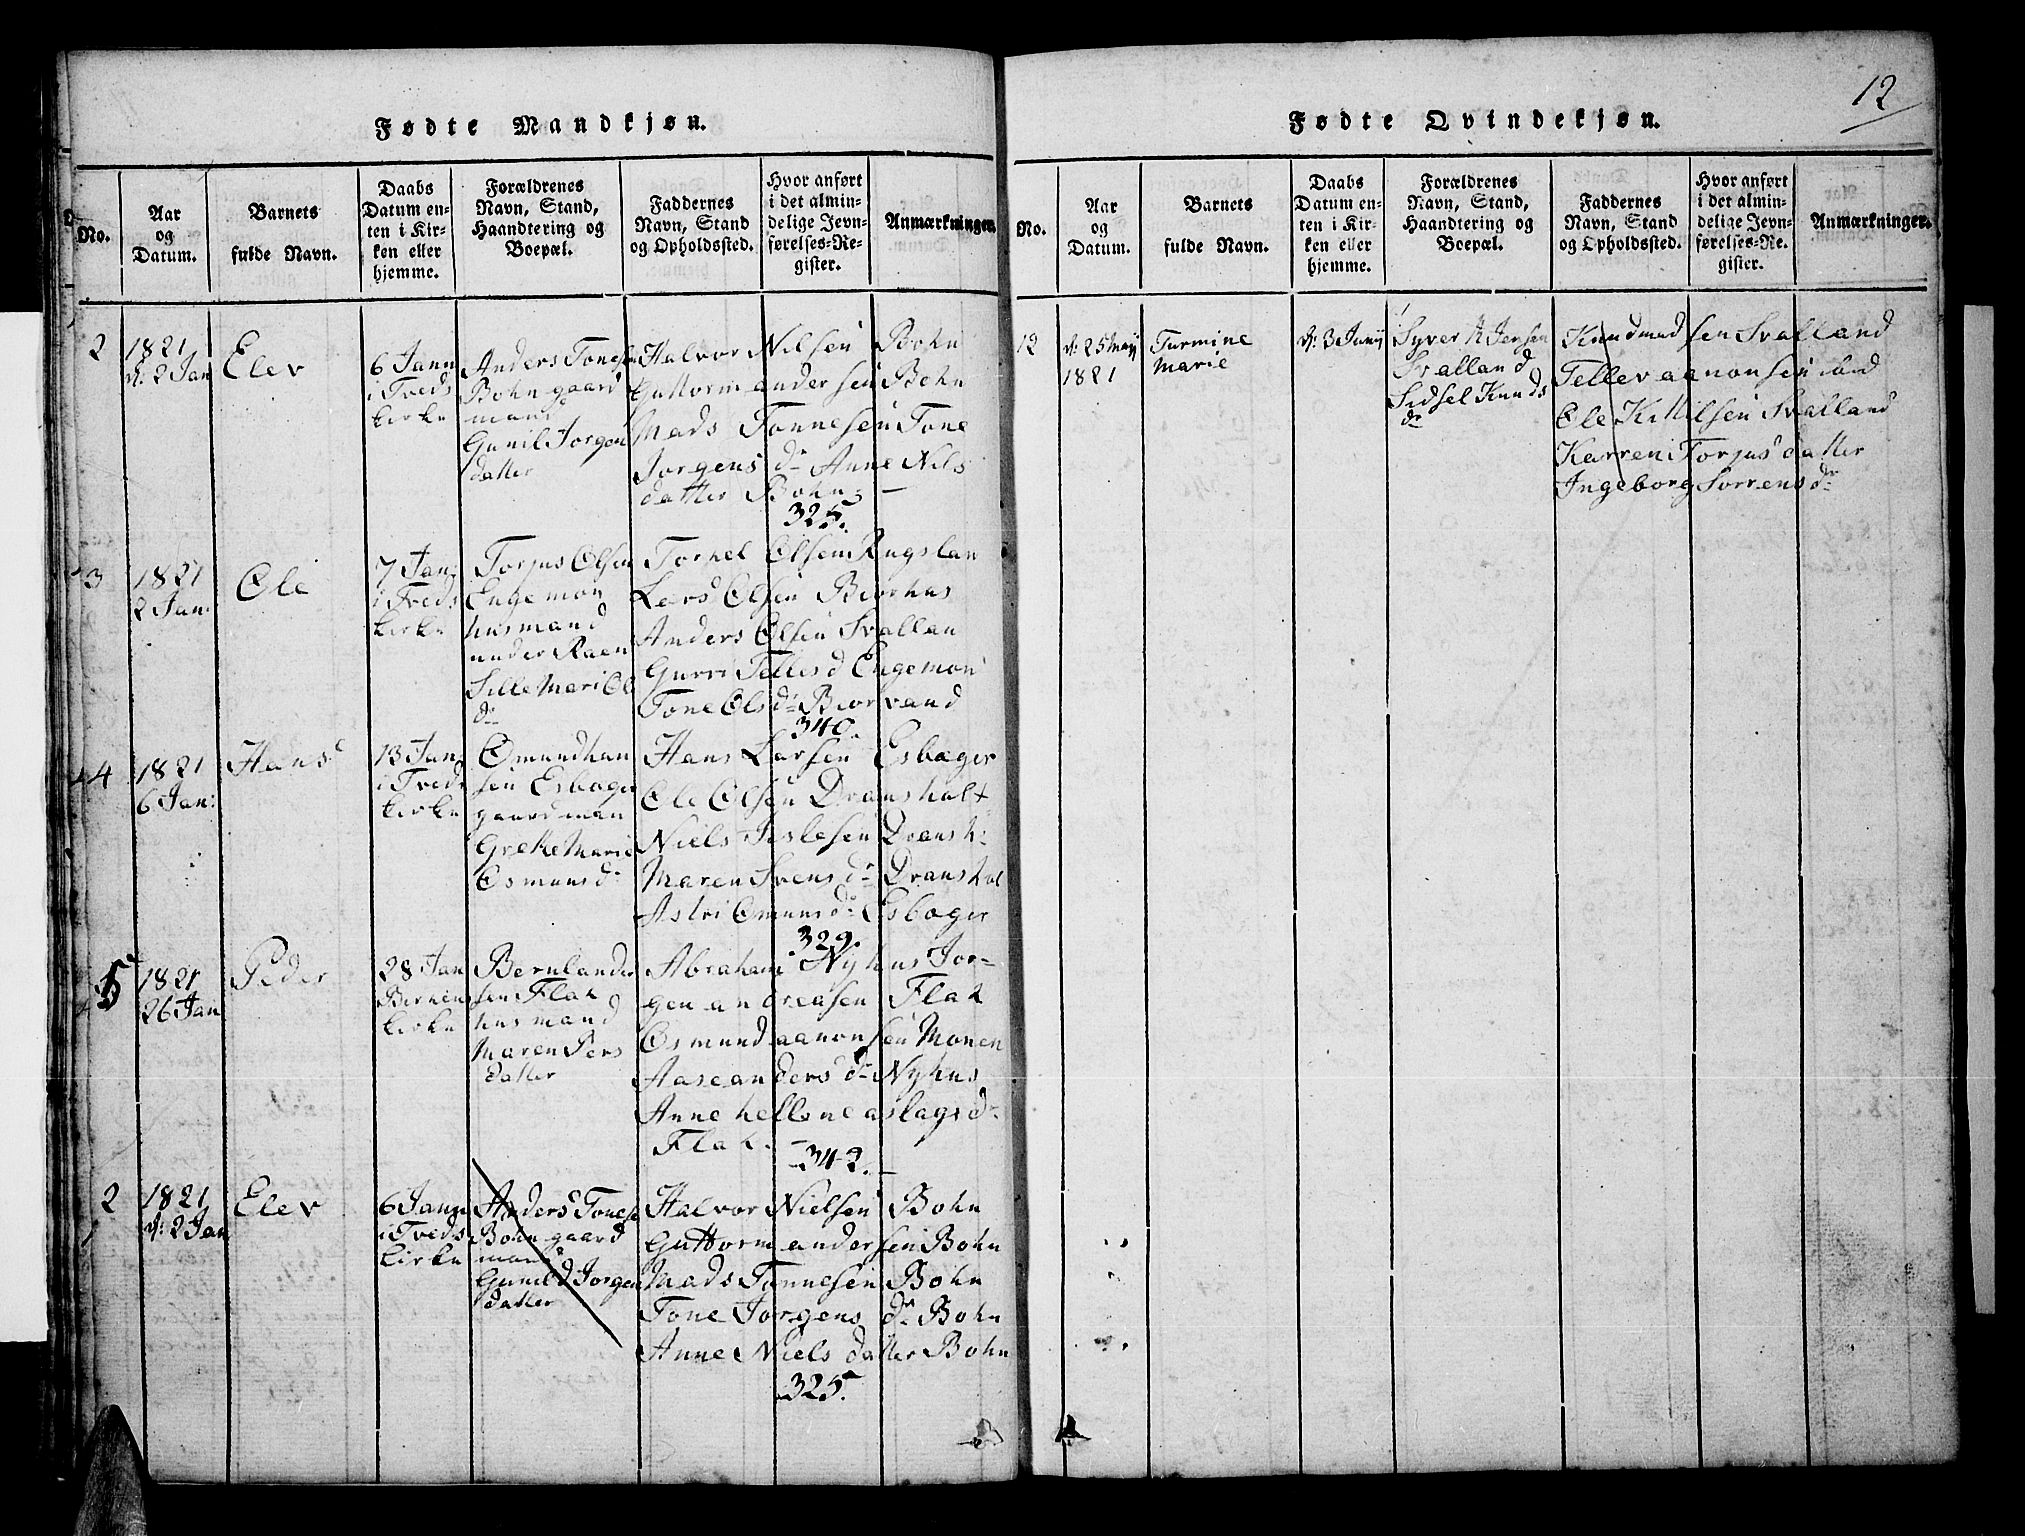 Fødte Mandkjøn.
No.
Aar
og
Datum.
Barnets
fulde Navn.
Daabs
Datum en-
ten i Kir-
ken eller
hjemme.
Forældrenes
Navn, Stand,
Haandtering og
Boepæl.
Faddernes
Navn, Stand
og Opholdssted.
Hvor anført
i det almin-
delige Jevn-
førelses-Re-
gister.
Anmærkninger.
2
1821
d: 2 Jan
Elev
6 Jann
i Treds
kirke
Anders Tonesen
Bohn gaard
mand
Gunil Jorgen
datter
Halvor Nilsen Bohn
Guttorm andersen Bohn
Mads Tonnesen Tone
Jorgens dr Anne Nils
datter Bohn
325.
3
1821
2 Jan:
Ole
7 Jan:
i Treds
kirke
Torjus Olsen
Engemon
husmand
under Raen
Sille Mari Ols
dr
Torkel Olsen Rugslan
Lars Olsen Biorhus
Anders Olsen Svallan
Gurri Telles d Engemon
Tone Ols dr Biorvand
340.
4
1821
6 Jan:
Hans
13 Jan
i Treds
kirke
Omund han
sen Esbager
gaardman
Grethe Marie
Osmuns dr
Hans Larsen Esbager
Ole Olsen Dransholt
Niels Jislesen Dransh:
Maren Svens dr Dranshol
Astri Omuns dr Esbager
329.
5
1821
26 Jan
Peder
28 Jan
Birkens
kirke
Bernt ander
sen Flak
husmand
Maren Pers
datter
Abraham Nyhus Jor-
gen andreasen Flak
Osmund aanonsen Monen
Aase anders dr Nyhus
Anne hellene aslags dr
Flak.
342.
2
1821
d: 2 Jan
Elev
6 Jann
i Treds
kirke
Anders Tonese
Bohn gaard
mand
Gunild Jorgen
datter
Halvor Nielsen Bohn
Guttorm andersen Bohn
Mads Tonnesen Bohn
Tone Jorgens dr Bohn
Anne Niels datter Bohn
325.
12
Fødte Qvindekjøn.
No.
Aar
og
Datum.
Barnets
fulde Navn.
Daabs
Datum en-
ten i Kir-
ken eller
hjemme.
Forældrenes
Navn, Stand,
Haandtering og
Boepæl.
Faddernes
Navn, Stand
og Opholdssted.
Hvor anført
i det almin-
delige Jevn-
førelses-Re-
gister.
Anmærkninger.
12
d: 25 May
1821
Turmine
Marie
d: 3 Juny
Syver K Jensen
Svalland
Sidsel Knuds
dr
Knud mad sen Svalland
Tellev aanonsen ibid
Ole Kittilsen Svalland
Karren Torjus datter
Ingeborg Sorrens dr